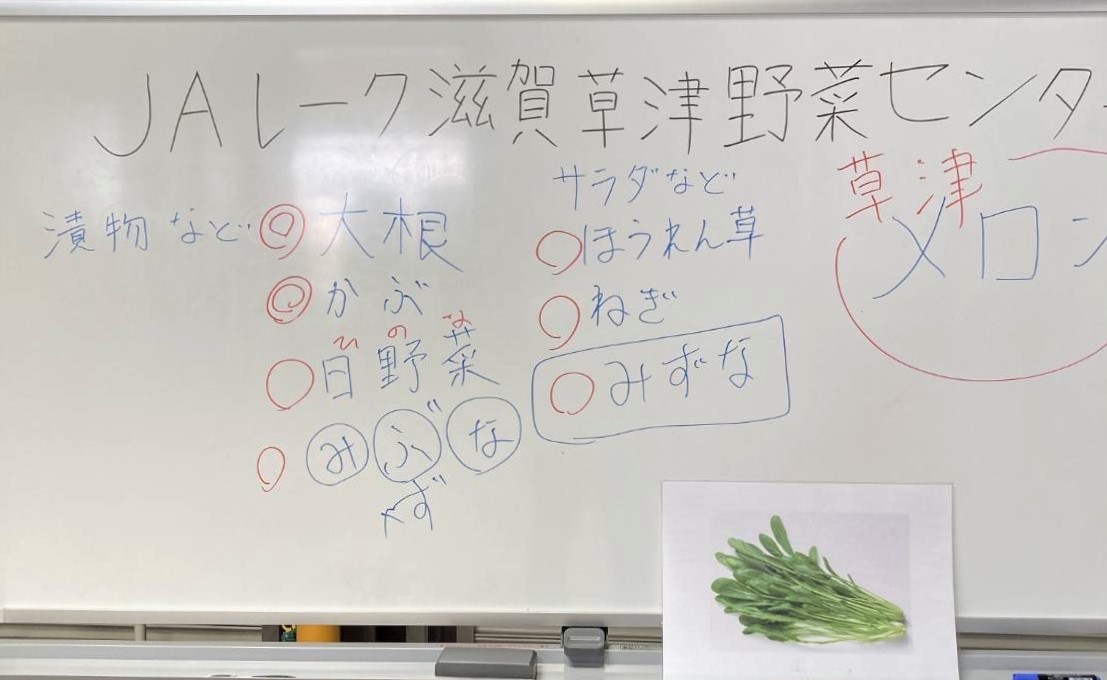 JAレーク滋賀草津野菜センター
漬物など ◎大根
◎かぶ
ひのな
○日野菜
○みぶな
ず
サラダなど
○ほうれん草
○ねぎ
○みずな
草津
メロン